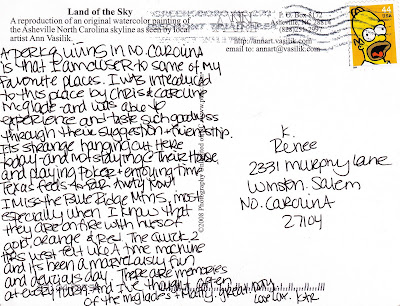 Land of the Sky
A reproduction of an original watercolor painting of
the Asheville North Carolina skyline as seen by local
artist Ann Vasilik.
P. O. Box 8172
Asheville, NC 28814
(828)251-2997
http://annart.vasilik.com
email to: annart@vasilik.com
44
USA
A perk of living in No. Carolina
is that I am closer to some of my
favorite places. I was introduced
to this place by Chris & Caroline
McGlade and was able to
experience and taste such goodness
through their suggestion + friendship.
Its strange hanging out here
today and not staying @ their house
and playing poker + enjoying time
Texas feels so far away now!
I miss the Blue Ridge Mtns, most
especially when I know that
they are on fire with hues of
gold, orange & red. The quick 2
hrs west felt like a time machine
and its been a marvelously fun
and delicious day. There are memories
at every turn and I've thought often
of the McGlades + Matty, great many
Love
K.
Renee
2331 Murphy Lane
Winston. Salem
No. Carolina
27104